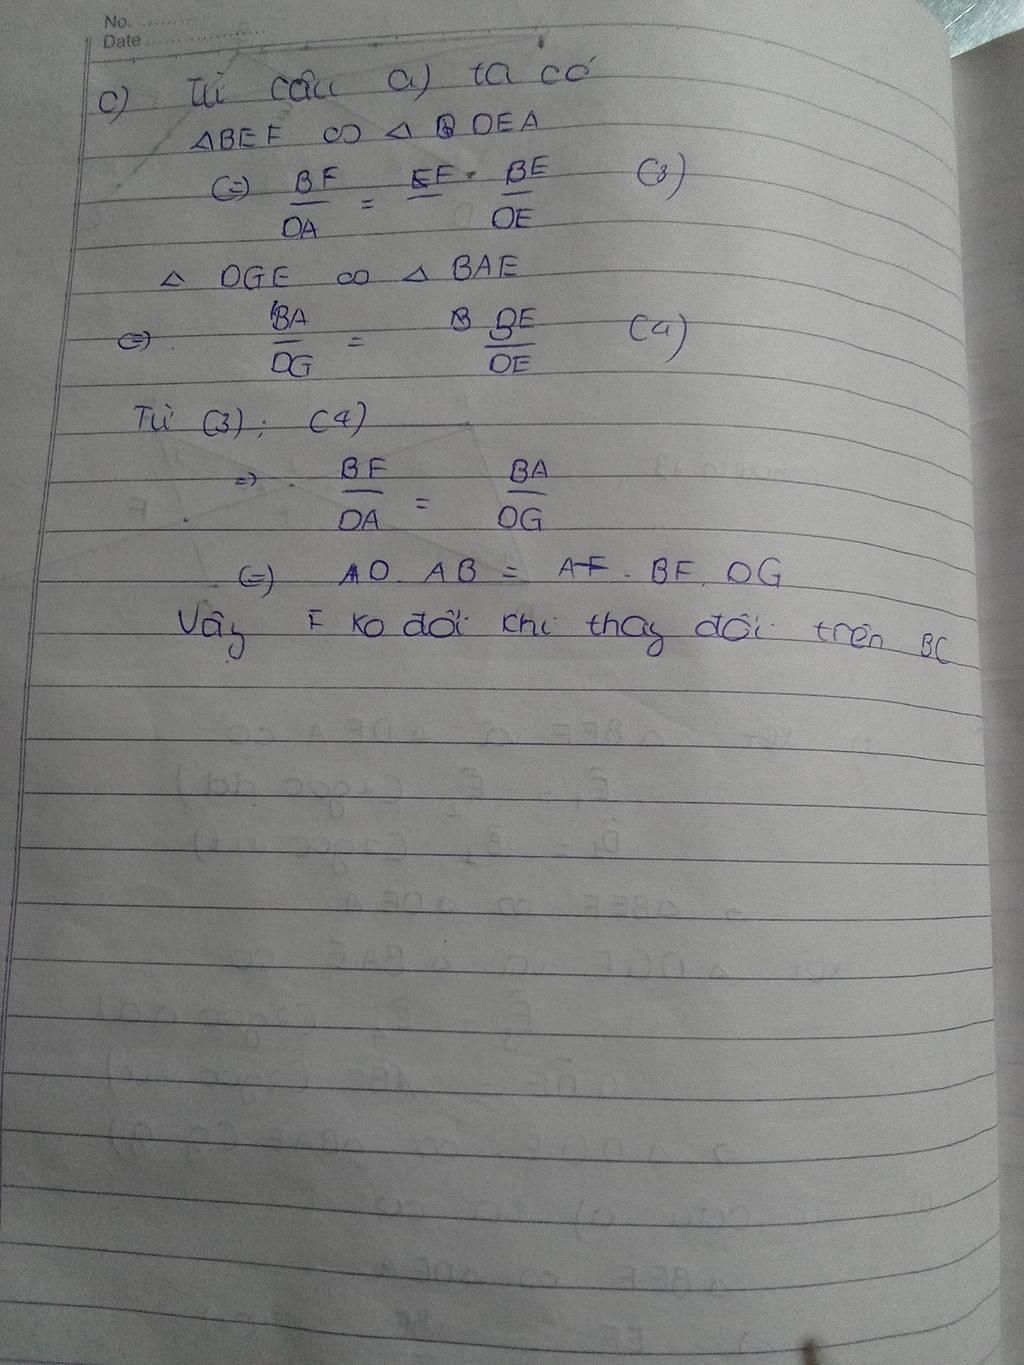 No.
Date
c) Từ câu a) ta có
△BEF ∽ △ DEA
(=) BF/DA = EF. BE/DE (3)
△ DGE ∽ △ BAE
(=) BA/DG = B BE/DE (4)
Từ (3); (4)
=) BF/DA = BA/DG
(=) AD. AB = AF. BF. DG
Vậy F ko đổi khi thay đổi trên BC